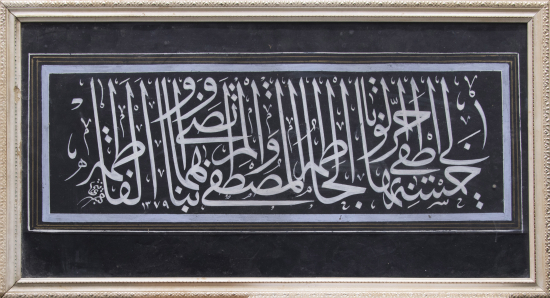 لی خمسة اطفی بها حرّ الوبا الحاطمه المصطفی و المرتضی و ابناهما و الفاطمه
١٣٧٩